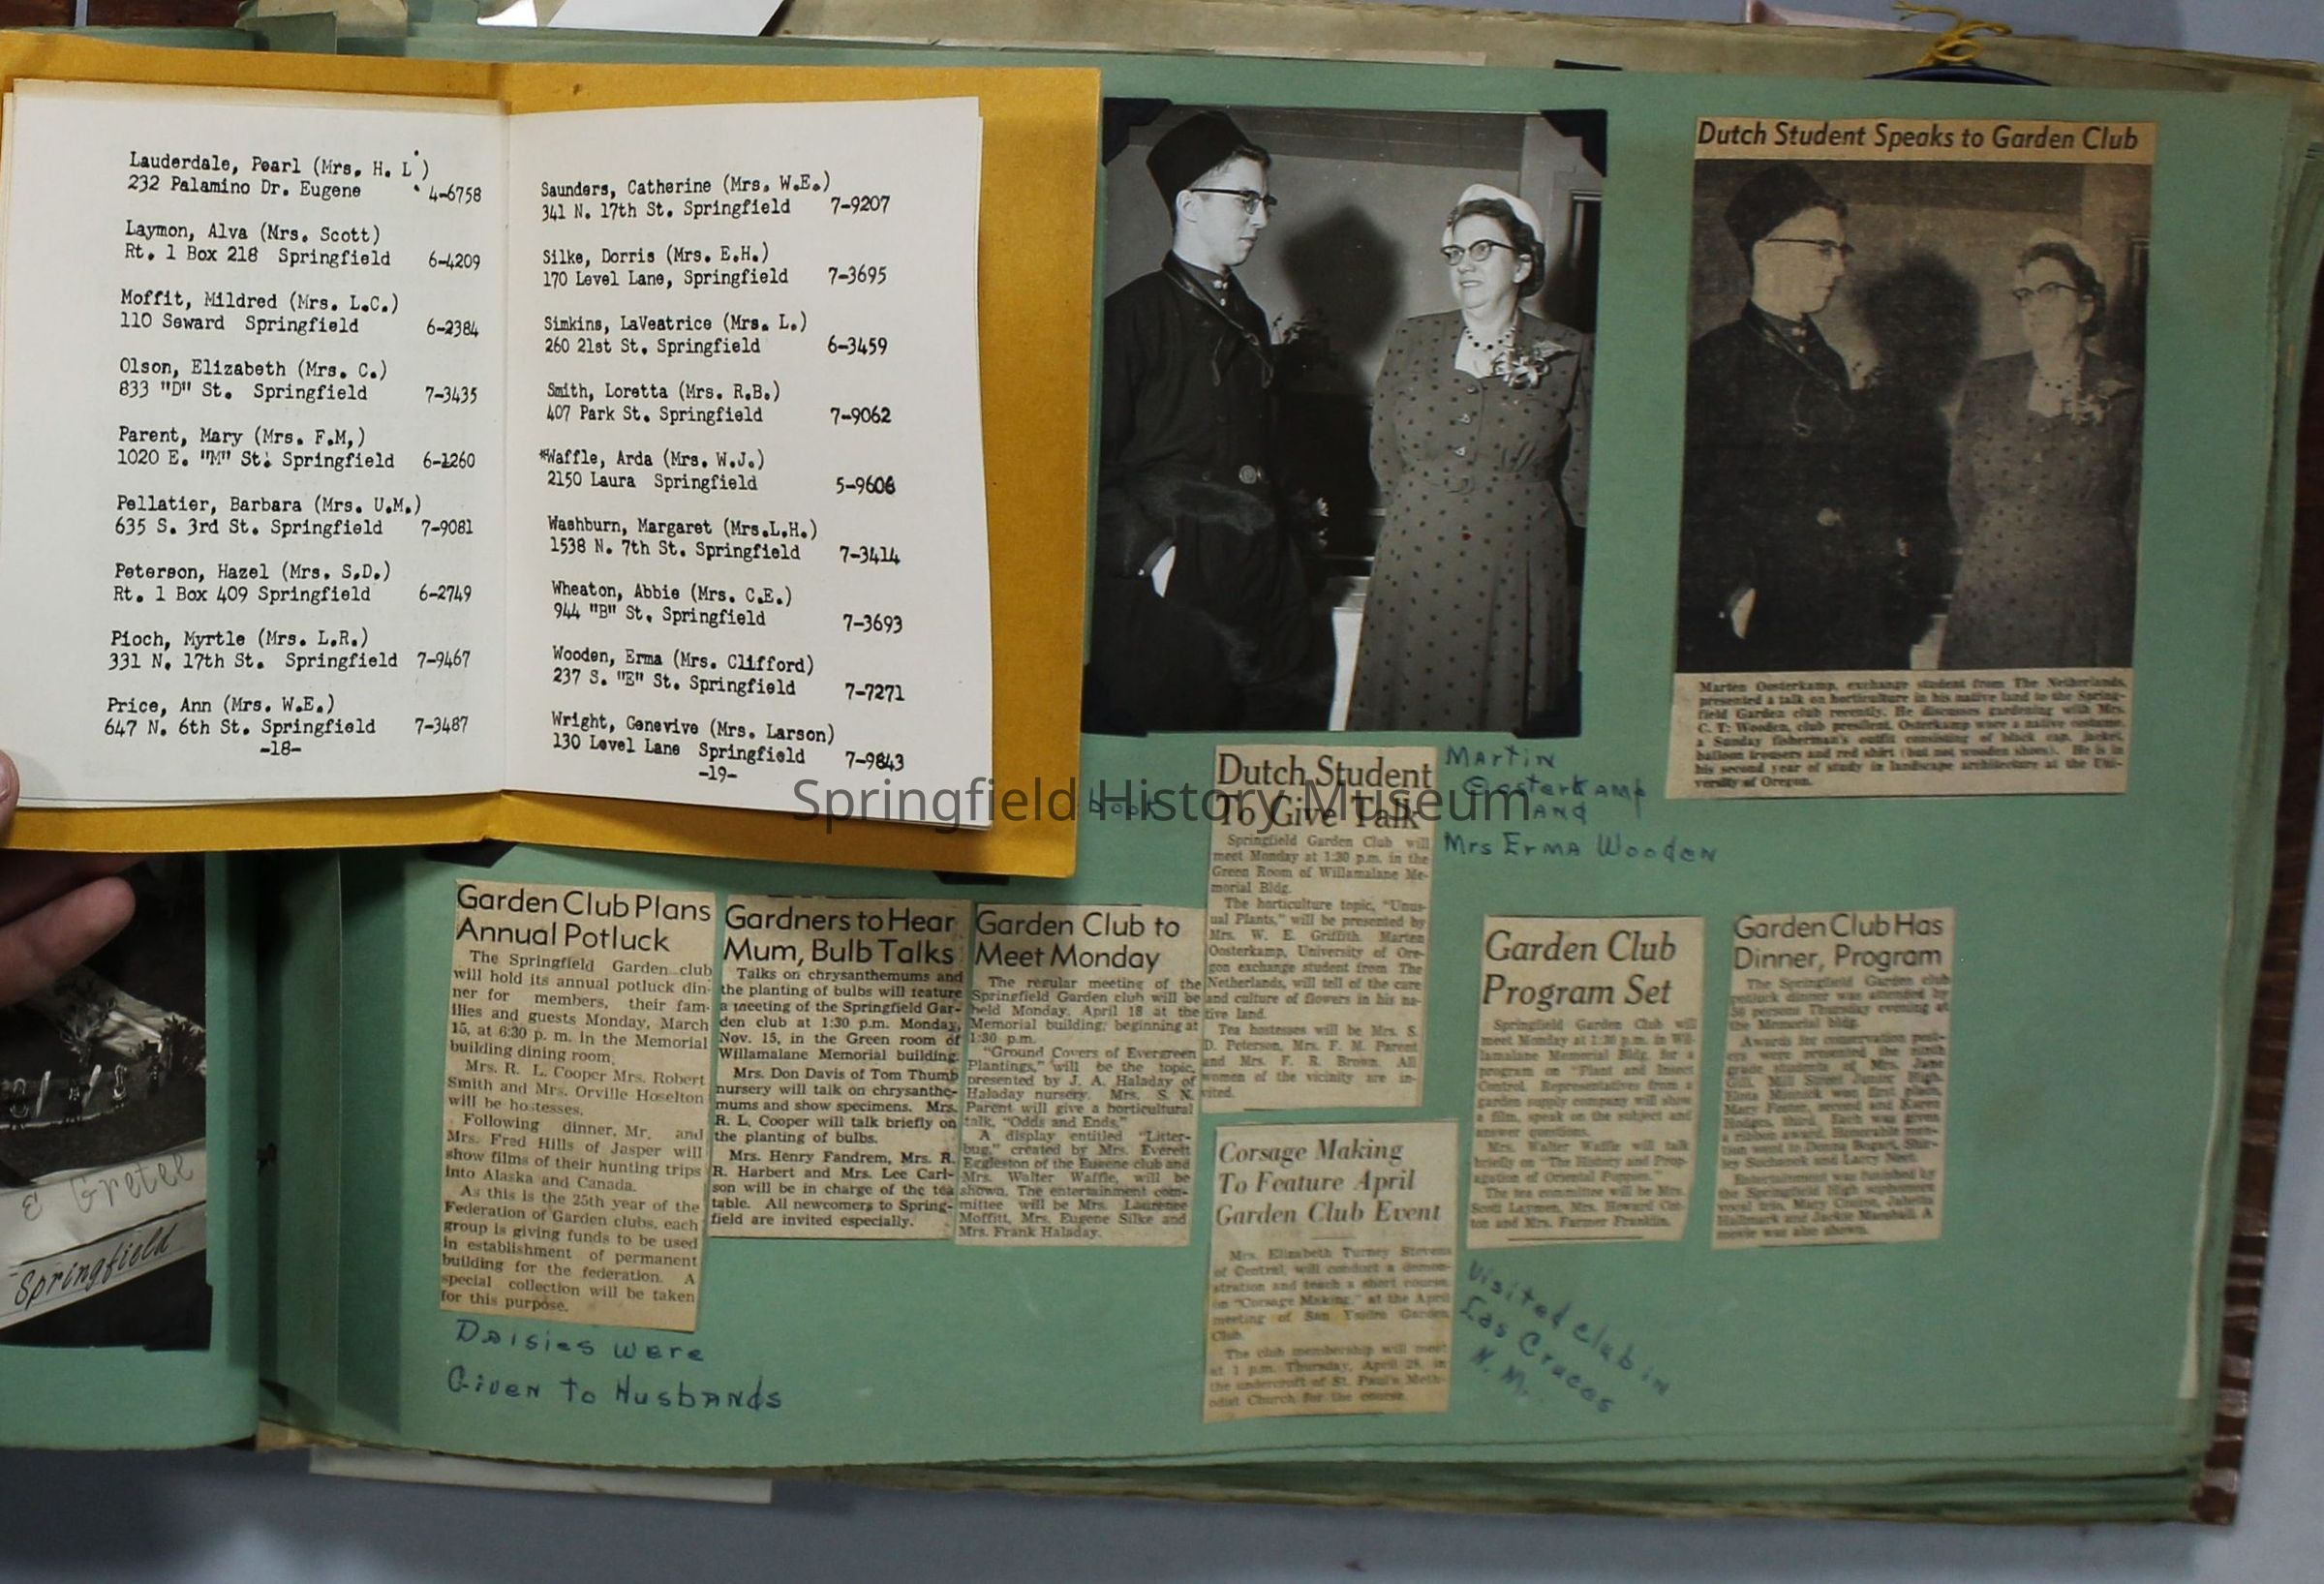 Lauderdale, Pearl (Mrs. H. L.)
232 Palamino Dr. Eugene 4-6758
Laymon, Alva (Mrs. Scott)
Rt. 1 Box 218 Springfield 6-4209
Moffit, Mildred (Mrs. L.C.)
110 Seward Springfield 6-2384
Olson, Elizabeth (Mrs. C.)
833 "D" St. Springfield 7-3435
Parent, Mary (Mrs. F.M,)
1020 E. "M" St. Springfield 6-1260
Pellatier, Barbara (Mrs. U.M.)
635 S. 3rd St. Springfield 7-9081
Peterson, Hazel (Mrs. S.D.)
Rt. 1 Box 409 Springfield 6-2749
Pioch, Myrtle (Mrs. L.R.)
331 N. 17th St. Springfield 7-9467
Price, Ann (Mrs. W.E.)
647 N. 6th St. Springfield 7-3487
-18-
Saunders, Catherine (Mrs. W.E.)
341 N. 17th St. Springfield 7-9207
Silke, Dorris (Mrs. E.H.)
170 Level Lane, Springfield 7-3695
Simkins, LaVeatrice (Mrs. L.)
260 21st St. Springfield 6-3459
Smith, Loretta (Mrs. R.B.)
407 Park St. Springfield 7-9062
*Waffle, Arda (Mrs. W.J.)
2150 Laura Springfield 5-9608
Washburn, Margaret (Mrs.L.H.)
1538 N. 7th St. Springfield 7-3414
Wheaton, Abbie (Mrs. C.E.)
944 "B" St. Springfield 7-3693
Wooden, Erma (Mrs. Clifford)
237 S. "E" St. Springfield 7-7271
Wright, Genevive (Mrs. Larson)
130 Level Lane Springfield 7-9843
-19-
Dutch Student Speaks to Garden Club
Marten Oosterkamp, exchange student from The Netherlands,
presented a talk on horticulture in his native land to the Spring-
field Garden club recently. He discusses gardening with Mrs.
C. T. Wooden, club president. Osterkamp wore a native costume,
a Sunday fisherman's outfit consisting of black cap, jacket,
balloon trousers and red shirt (but not wooden shoes). He is in
his second year of study in landscape architecture at the Uni-
versity of Oregon.
book
Martin
Oosterkamp
and
Mrs Erma Wooden
Springfield History Museum
Dutch Student
To Give Talk
Springfield Garden Club will
meet Monday at 1:30 p.m. in the
Green Room of Willamalane Me-
morial Bldg.
The horticulture topic, "Unus-
ual Plants," will be presented by
Mrs. W. E. Griffith. Marten
Oosterkamp, University of Ore-
gon exchange student from The
Netherlands, will tell of the care
and culture of flowers in his na-
tive land.
Tea hostesses will be Mrs. S.
D. Peterson, Mrs. F. M. Parent
and Mrs. F. R. Brown. All
women of the vicinity are in-
vited.
Garden Club Plans
Annual Potluck
The Springfield Garden club
will hold its annual potluck din-
ner for members, their fam-
ilies and guests Monday, March
15, at 6:30 p. m. in the Memorial
building dining room.
Mrs. R. L. Cooper Mrs. Robert
Smith and Mrs. Orville Hoselton
will be hostesses.
Following dinner, Mr. and
Mrs. Fred Hills of Jasper will
show films of their hunting trips
into Alaska and Canada.
As this is the 25th year of the
Federation of Garden clubs, each
group is giving funds to be used
in establishment of permanent
building for the federation. A
special collection will be taken
for this purpose.
Daisies were
Given to Husbands
Gardners to Hear
Mum, Bulb Talks
Talks on chrysanthemums and
the planting of bulbs will feature
a meeting of the Springfield Gar-
den club at 1:30 p.m. Monday,
Nov. 15, in the Green room of
Willamalane Memorial building.
Mrs. Don Davis of Tom Thumb
nursery will talk on chrysanthe-
mums and show specimens. Mrs.
R. L. Cooper will talk briefly on
the planting of bulbs.
Mrs. Henry Fandrem, Mrs. R.
R. Harbert and Mrs. Lee Carl-
son will be in charge of the tea
table. All newcomers to Spring-
field are invited especially.
Garden Club to
Meet Monday
The regular meeting of the
Springfield Garden club will be
held Monday, April 18 at the
Memorial building, beginning at
1:30 p.m.
"Ground Covers of Evergreen
Plantings," will be the topic,
presented by J. A. Haladay of
Haladay nursery. Mrs. S. N.
Parent will give a horticultural
talk, "Odds and Ends."
A display entitled "Litter-
bug," created by Mrs. Everett
Eggleston of the Eugene club and
Mrs. Walter Waffle, will be
shown. The entertainment com-
mittee will be Mrs. Laurence
Moffitt, Mrs. Eugene Silke and
Mrs. Frank Haladay.
Corsage Making
To Feature April
Garden Club Event
Mrs. Elizabeth Turney Stevens
of Central, will conduct a demon-
stration and teach a short course
in "Corsage Making," at the April
meeting of San Ysidro Garden
Club.
The club membership will meet
at 1 p.m. Thursday, April 28, in
the undercroft of St. Paul's Meth-
odist Church for the course.
Visited club in
Las Cruces
N. M.
Garden Club
Program Set
Springfield Garden Club will
meet Monday at 1:30 p.m. in Wil-
lamalane Memorial Bldg. for a
program on "Plant and Insect
Control. Representatives from a
garden supply company will show
a film, speak on the subject and
answer questions.
Mrs. Walter Waffle will talk
briefly on "The History and Prop-
agation of Oriental Poppies."
The tea committee will be Mrs.
Scott Laymen, Mrs. Howard
ton and Mrs. Farmer Franklin.
Garden Club Has
Dinner, Program
The Springfield Garden club
potluck dinner was attended by
persons Thursday evening at
the Memorial bldg.
Awards for conservation post-
ers were presented the ninth
grade students of Mrs. Jane
Gill, Mill Street Junior High.
was first place,
Mary Foster, second and Karen
Hodges, third. Each was given
a ribbon award. Honorable men-
tion went to Donna Bogart, Shir-
ley and Larry
Entertainment was furnished by
the Springfield High sophomore
vocal trio, Mary
Hallmark and Jackie Marshall. A
movie was also shown.
E Gretel
Springfield